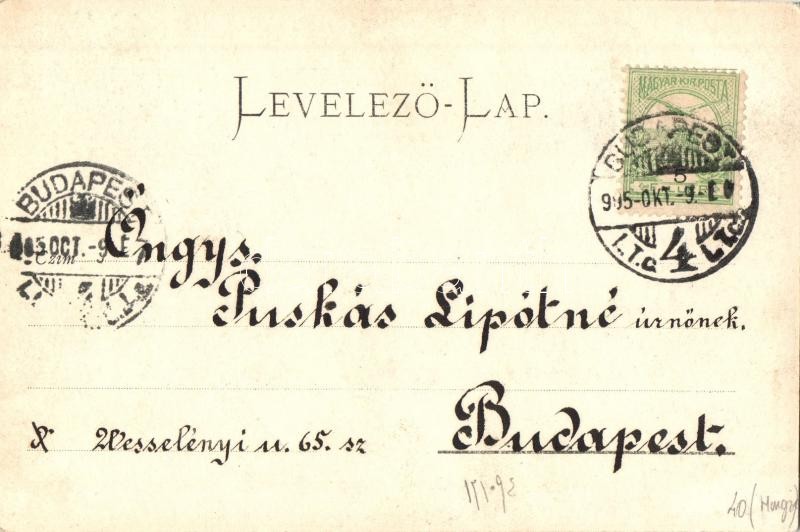 LEVELEZÖ-LAP.
MAGYAR KIR. POSTA
BUDAPEST
5
905-OKT.-9.
4
BUDAPEST
905 OCT.-9. E
Czim
Öngys.
Puskás Lipótné úrnőnek.
X. Wesselényi u. 65. sz Budapest.
40 (